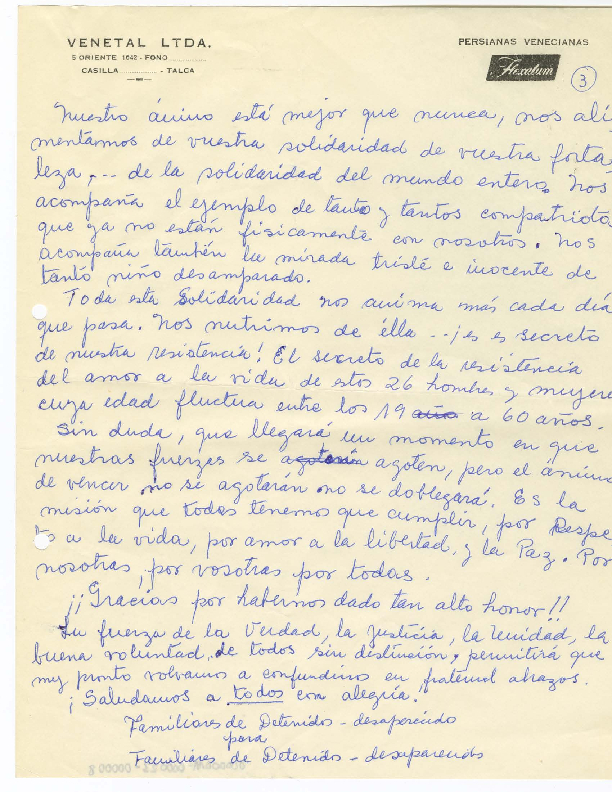 VENETAL LTDA.
5 ORIENTE 1642 - FONO
CASILLA - TALCA
PERSIANAS VENECIANAS
Flexalum
3
Nuestro ánimo está mejor que nunca, nos ali
mentamos de vuestra solidaridad de vuestra forta,
leza, -.. de la solidaridad del mundo entero. Nos
acompaña el ejemplo de tanto y tantos compatriota
que ya no están fisicamente con nosotros. Nos
acompaña también la mirada triste e inocente de
tanto niño desamparado.
Toda esta Solidaridad nos anima más cada día
que pasa. Nos nutrimos de élla -..¡es es secreto
de nuestra resistencia! El secreto de la resistencia
del amor a la vida de estos 26 hombres y mujere
cuya edad fluctua entre los 19 año a 60 años.
Sin duda, que llegará un momento en que
nuestras fuerzas se agotarán agoten, pero el ánimo
de vencer no se agotarán no se doblegará. Es la
misión que todos tenemos que cumplir, por Respe
to a la vida, por amor a la libertad, y la Paz. Por
nosotras, por vosotras por todas.
¡¡Gracias por habernos dado tan alto honor!!
La fuerza de la Verdad, la justicia, la unidad, la
buena voluntad, de todos sin distinción, permitirá que
muy pronto volvamos a confundirnos en fraternal abrazos.
¡Saludamos a todos con alegria!
Familiares de Detenidos - desaparecido
para
Familiares de Detenidos - desaparecidos